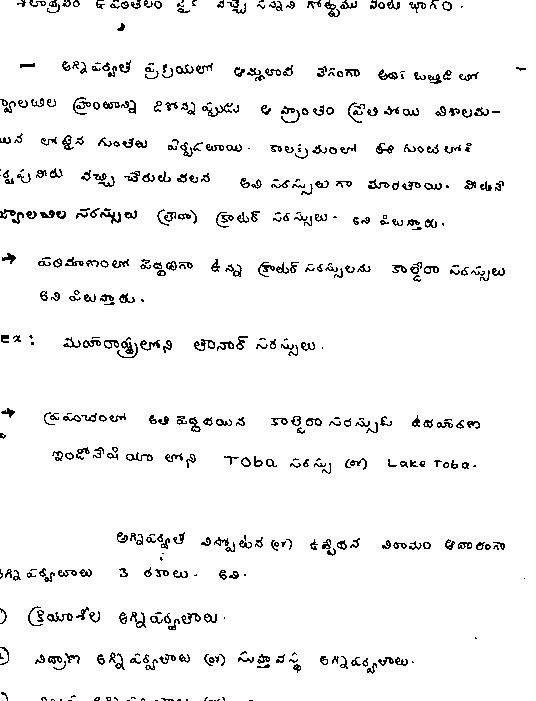 శిలాద్రవం ఉపరితలం పైకి వచ్చే సన్నని గొట్టము వంటి భాగం.
– అగ్నిపర్వత ప్రక్రియలో శిలాద్రవం వేగంగా అధిక ఒత్తిడి తో
జ్వాలబిల ప్రాంతాన్ని ఢీకొన్నప్పుడు ఆ ప్రాంతం ప్రేలిపోయి విశాలమ-
యిన లోతైన గుంతలు ఏర్పడతాయి. కాలక్రమంలో ఈ గుంటలోకి
వర్షపు నీరు వచ్చి చేరుట వలన అవి సరస్సులు గా మారతాయి. వీటినే
జ్వాలబిల సరస్సులు (లేదా) క్రాటర్ సరస్సులు. అని పిలుస్తారు.
→ పరిమాణంలో పెద్దదిగా ఉన్న క్రాటర్ సరస్సులను కాల్డెరా సరస్సులు
అని పిలుస్తారు.
Ex: మహారాష్ట్రలోని లూనార్ సరస్సులు.
→ ప్రపంచంలో అతి పెద్దదయిన కాల్డెరా సరస్సుకి ఉదాహరణ
ఇండోనేషియా లోని Toba సరస్సు (or) Lake Toba.
అగ్నిపర్వత విస్ఫోటన (or) ఉద్భేదన విరామం ఆధారంగా
అగ్నిపర్వతాలు 3 రకాలు. అవి.
) క్రియాశీల అగ్నిపర్వతాలు.
) నిద్రాణ అగ్నిపర్వతాలు (or) సుప్తావస్థ అగ్నిపర్వతాలు.